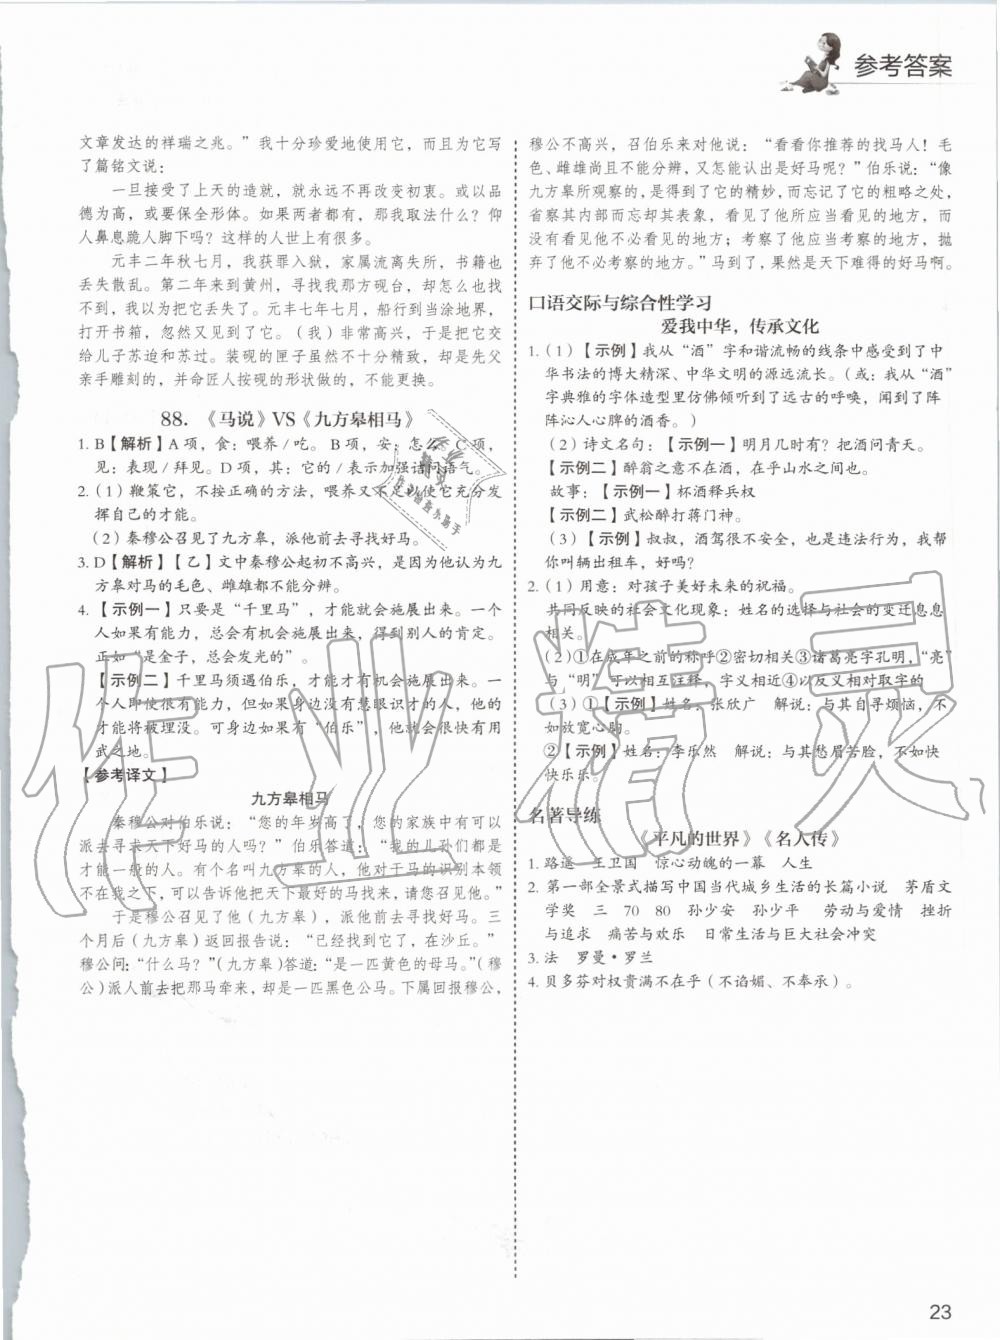 参考答案
文章发达的祥瑞之兆。”我十分珍爱地使用它，而且为它写
了篇铭文说：
一旦接受了上天的造就，就永远不再改变初衷。或以品
德为高，或要保全形体。如果两者都有，那我取法什么？仰
人鼻息跪人脚下吗？这样的人世上有很多。
元丰二年秋七月，我获罪入狱，家属流离失所，书籍也
丢失散乱。第二年来到黄州，寻找我那方砚台，却怎么也找
不到，以为把它丢失了。元丰七年七月，船行到当涂地界，
打开书箱，忽然又见到了它。（我）非常高兴，于是把它交
给儿子苏迨和苏过。装砚的匣子虽然不十分精致，却是先父
亲手雕刻的，并命匠人按砚的形状做的，不能更换。
88.《马说》VS《九方皋相马》
1. B【解析】A 项，食：喂养／吃。 B 项，安：怎么。C 项，
见：表现／拜见。D 项，其：它的／表示加强诘问语气。
2.（1）鞭策它，不按正确的方法，喂养又不足以使它充分发
挥自己的才能。
（2）秦穆公召见了九方皋，派他前去寻找好马。
3. D【解析】【乙】文中秦穆公起初不高兴，是因为他认为九
方皋对马的毛色、雌雄都不能分辨。
4. 【示例一】只要是“千里马”，才能就会施展出来。一个
人如果有能力，总会有机会施展出来，得到别人的肯定。
正如“是金子，总会发光的”。
【示例二】千里马须遇伯乐，才能才有机会施展出来。一
个人即使很有能力，但如果身边没有慧眼识才的人，他的
才能将被埋没。可身边如果有“伯乐”，他就会很快有用
武之地。
【参考译文】
九方皋相马
秦穆公对伯乐说：“您的年岁高了，您的家族中有可以
派去寻求天下好马的人吗？”伯乐答道：“我的儿孙们都是
才能一般的人。有个名叫九方皋的人，他对于马的识别本领
不在我之下，可以告诉他把天下最好的马找来，请您召见他。”
于是穆公召见了他（九方皋），派他前去寻找好马。三
个月后（九方皋）返回报告说：“已经找到了，在沙丘。”
穆公问：“什么马？”（九方皋）答道：“是一匹黄色的母马。”（穆
公）派人前去把那马牵来，却是一匹黑色公马。下属回报穆公，
穆公不高兴，召伯乐来对他说：“看看你推荐的找马人！毛
色、雌雄尚且不能分辨，又怎能认出是好马呢？”伯乐说：“像
九方皋所观察的，是得到了它的精妙，而忘记了它的粗略之处，
省察其内部而忘却其表象，看见了他所应当看见的地方，而
没有看见他不必看见的地方；考察了他应当考察的地方，抛
弃了他不必考察的地方。”马到了，果然是天下难得的好马啊。
口语交际与综合性学习
爱我中华，传承文化
1.（1）【示例】我从“酒”字和谐流畅的线条中感受到了中
华书法的博大精深、中华文明的源远流长。（或：我从“酒”
字典雅的字体造型里仿佛倾听到了远古的呼唤，闻到了阵
阵沁人心脾的酒香。）
（2）诗文名句：【示例一】明月几时有？把酒问青天。
【示例二】醉翁之意不在酒，在乎山水之间也。
故事：【示例一】杯酒释兵权
【示例二】武松醉打蒋门神。
（3）【示例】叔叔，酒驾很不安全，也是违法行为，我帮
你叫辆出租车，好吗？
2.（1）用意：对孩子美好未来的祝福。
共同反映的社会文化现象：姓名的选择与社会的变迁息息
相关。
（2）①在成年之前的称呼②密切相关③诸葛亮字孔明，“亮”
与“明”可以相互注释，字义相近④以反义相对取字的
（3）①【示例】姓名：张欣广　解说：与其自寻烦恼，不
如放宽心胸。
②【示例】姓名：李乐然　解说：与其愁眉苦脸，不如快
快乐乐。
名著导练
《平凡的世界》《名人传》
1. 路遥　王卫国　惊心动魄的一幕　人生
2. 第一部全景式描写中国当代城乡生活的长篇小说　茅盾文
学奖　三　70　80　孙少安　孙少平　劳动与爱情　挫折
与追求　痛苦与欢乐　日常生活与巨大社会冲突
3. 法　罗曼·罗兰
4. 贝多芬对权贵满不在乎（不谄媚、不奉承）。
作业精灵
23